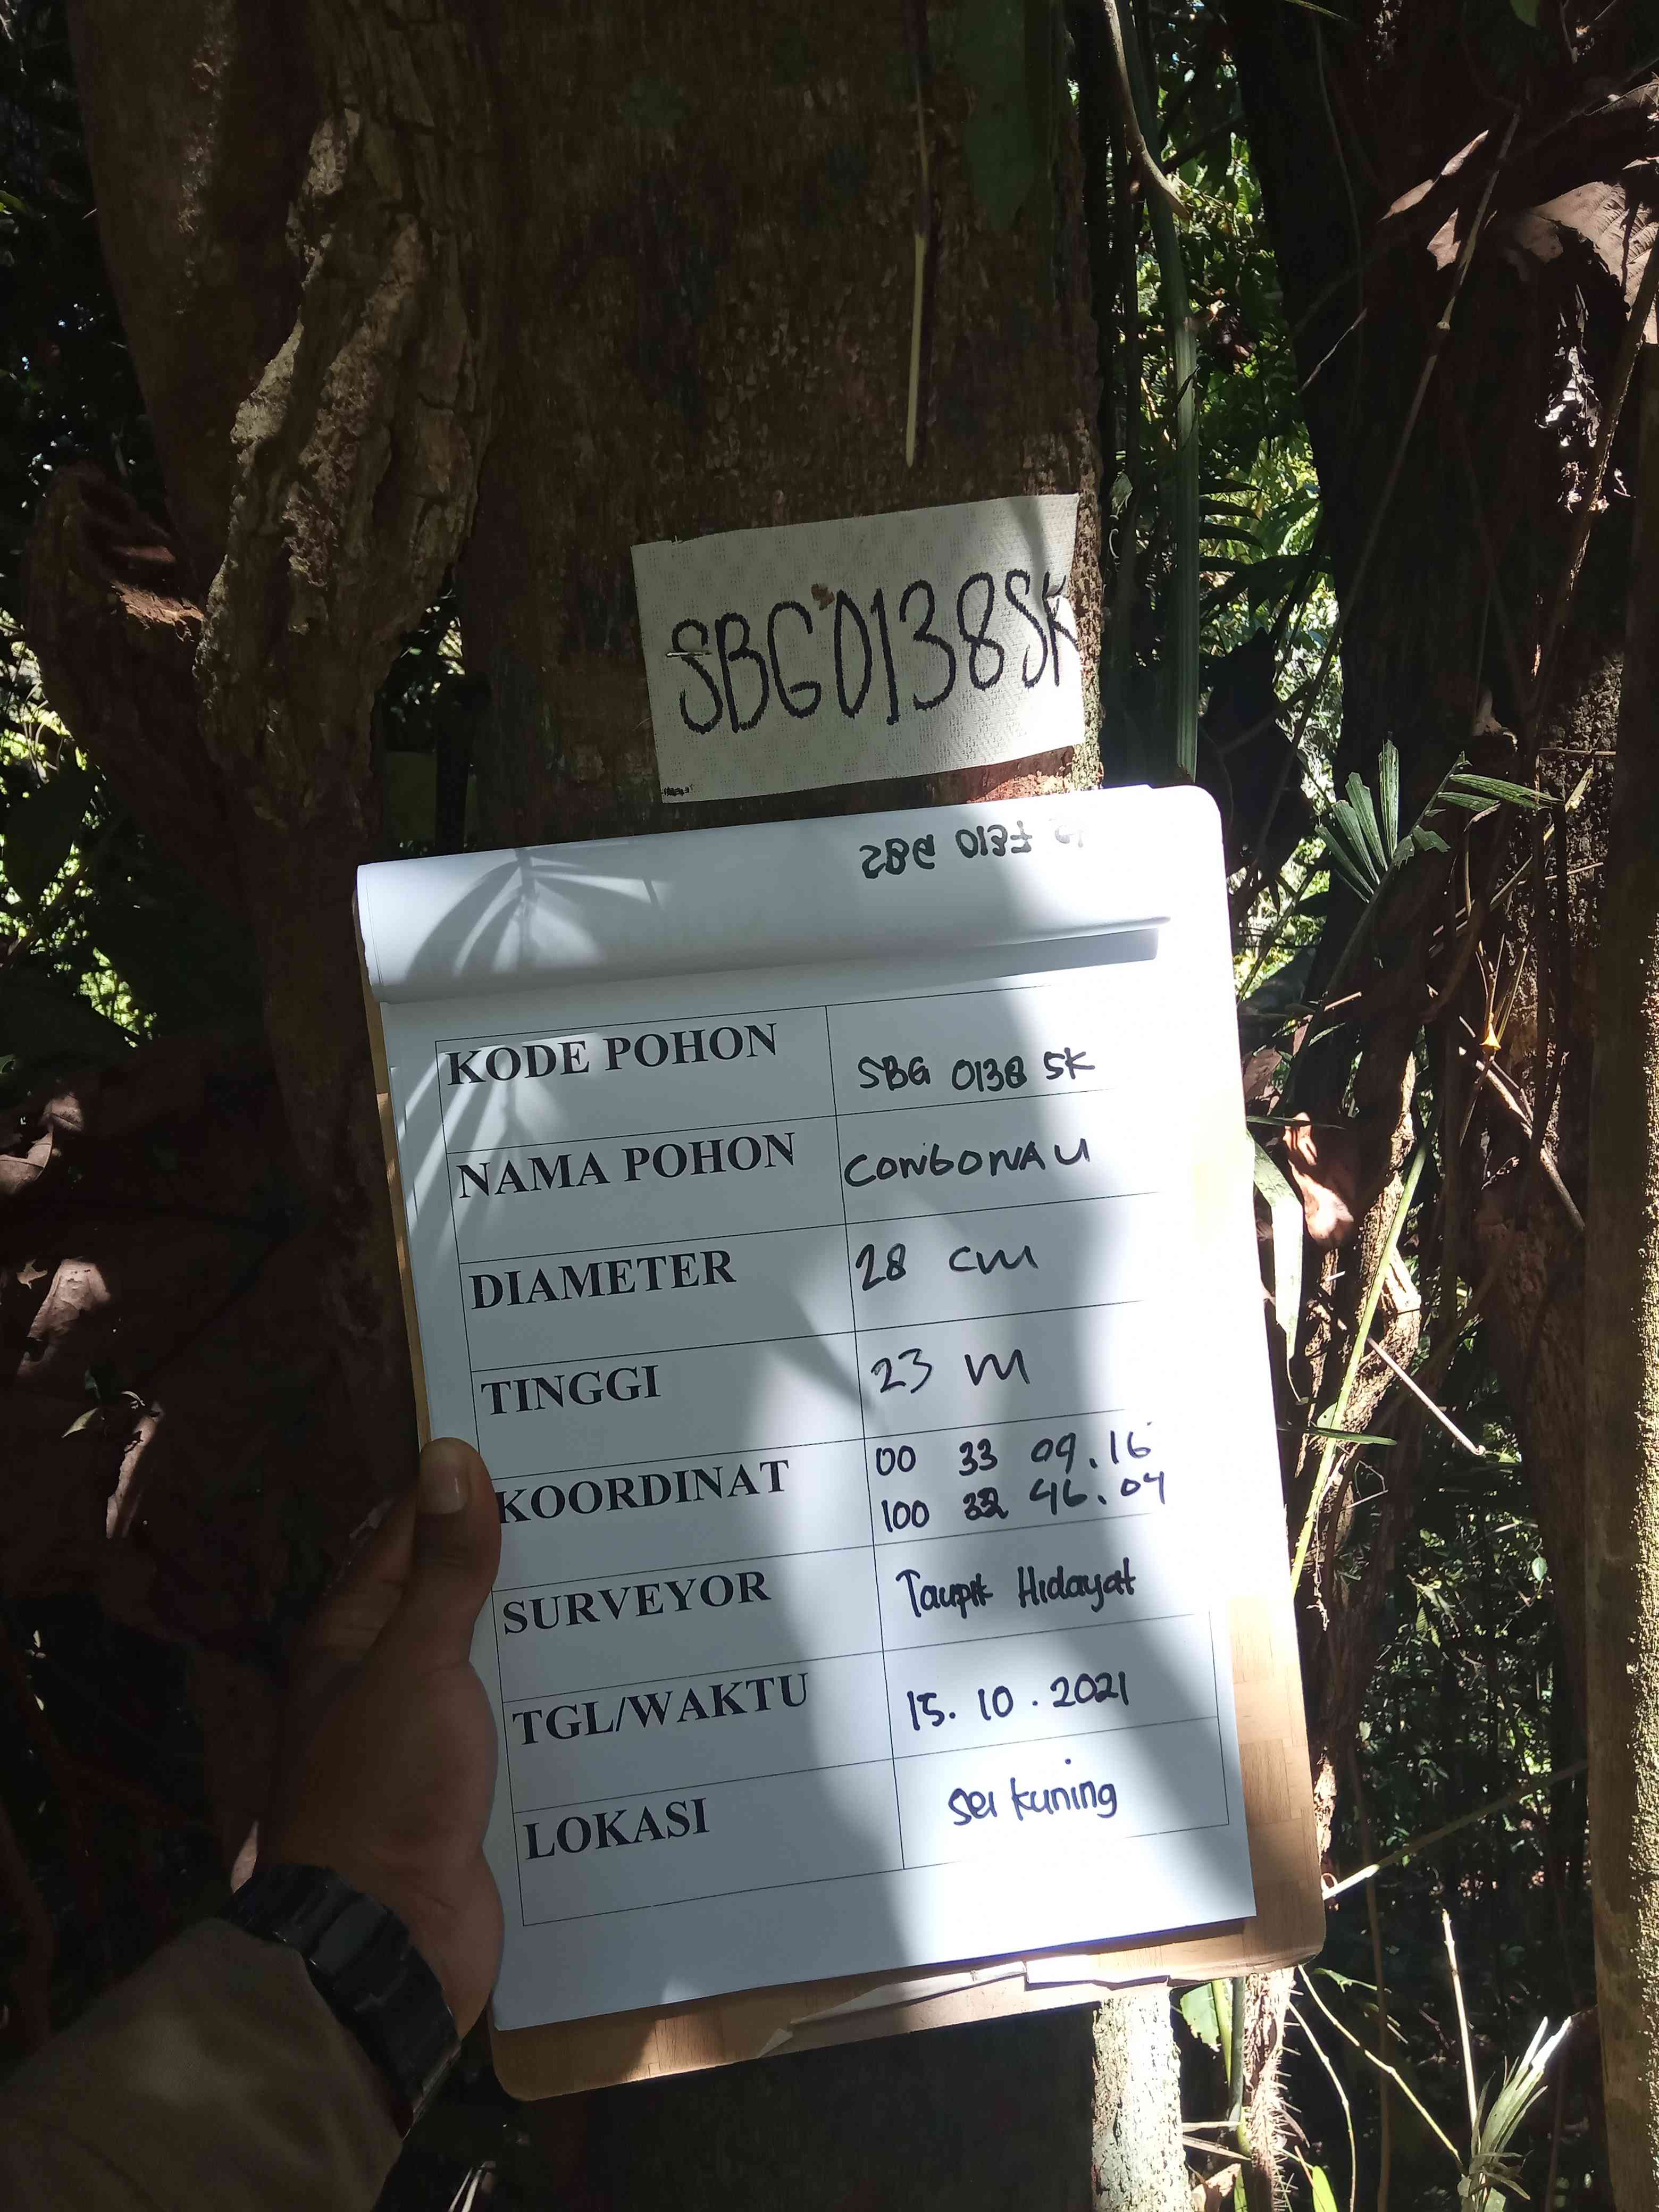 SBG0138SK
KODE POHON SBG 0138 SK
NAMA POHON CONGONAU
DIAMETER 28 cm
TINGGI 23 m
KOORDINAT 00 33 09.16
100 32 46.04
SURVEYOR Taupik Hidayat
TGL/WAKTU 15.10.2021
LOKASI sei kuning